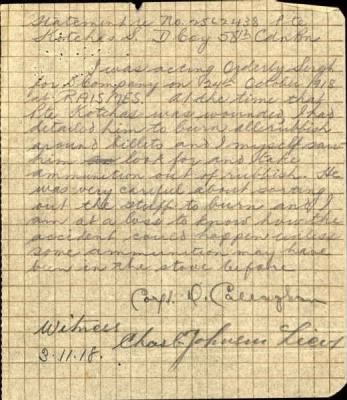 Statement re No. 2562438 Pte
Kotchas S. D Coy 58th Cdn Bn
I was acting Orderly Sergt
for D Company on 24th October 1918
at RAISMES. At the time that
Pte Kotchas was wounded, I had
detailed him to burn all rubbish
around billets and I myself saw
him look for and take
ammunition out of rubbish. He
was very careful about sorting
out the stuff to burn and I
am at a loss to know how the
accident could happen unless
some ammunition may have
been in the stove before
D. Callaghan
Witness
Chas Johnson Lieut
3.11.18.